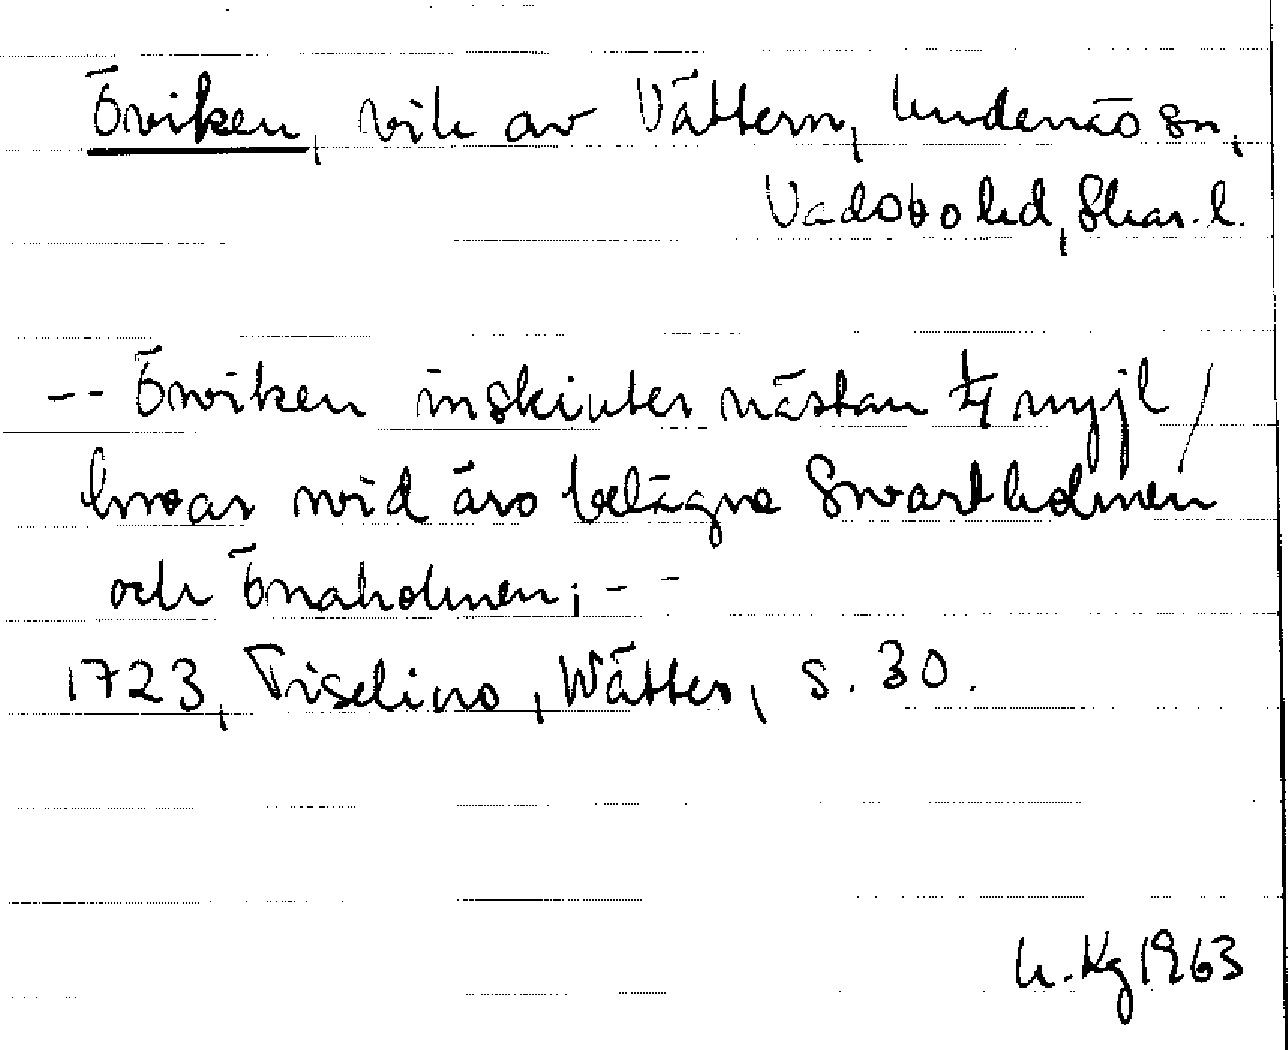 Öviken, vik av Vättern, Undenäs sn,
Vadsbo hd, Skar. l.
-- Öwiken inskiuter nästan 1/4 myjl /
hwar wid äro belägne Swartholmen
och Önaholmen; --
1723, Tiselius, Wätter, s. 30.
U. Kg 1963